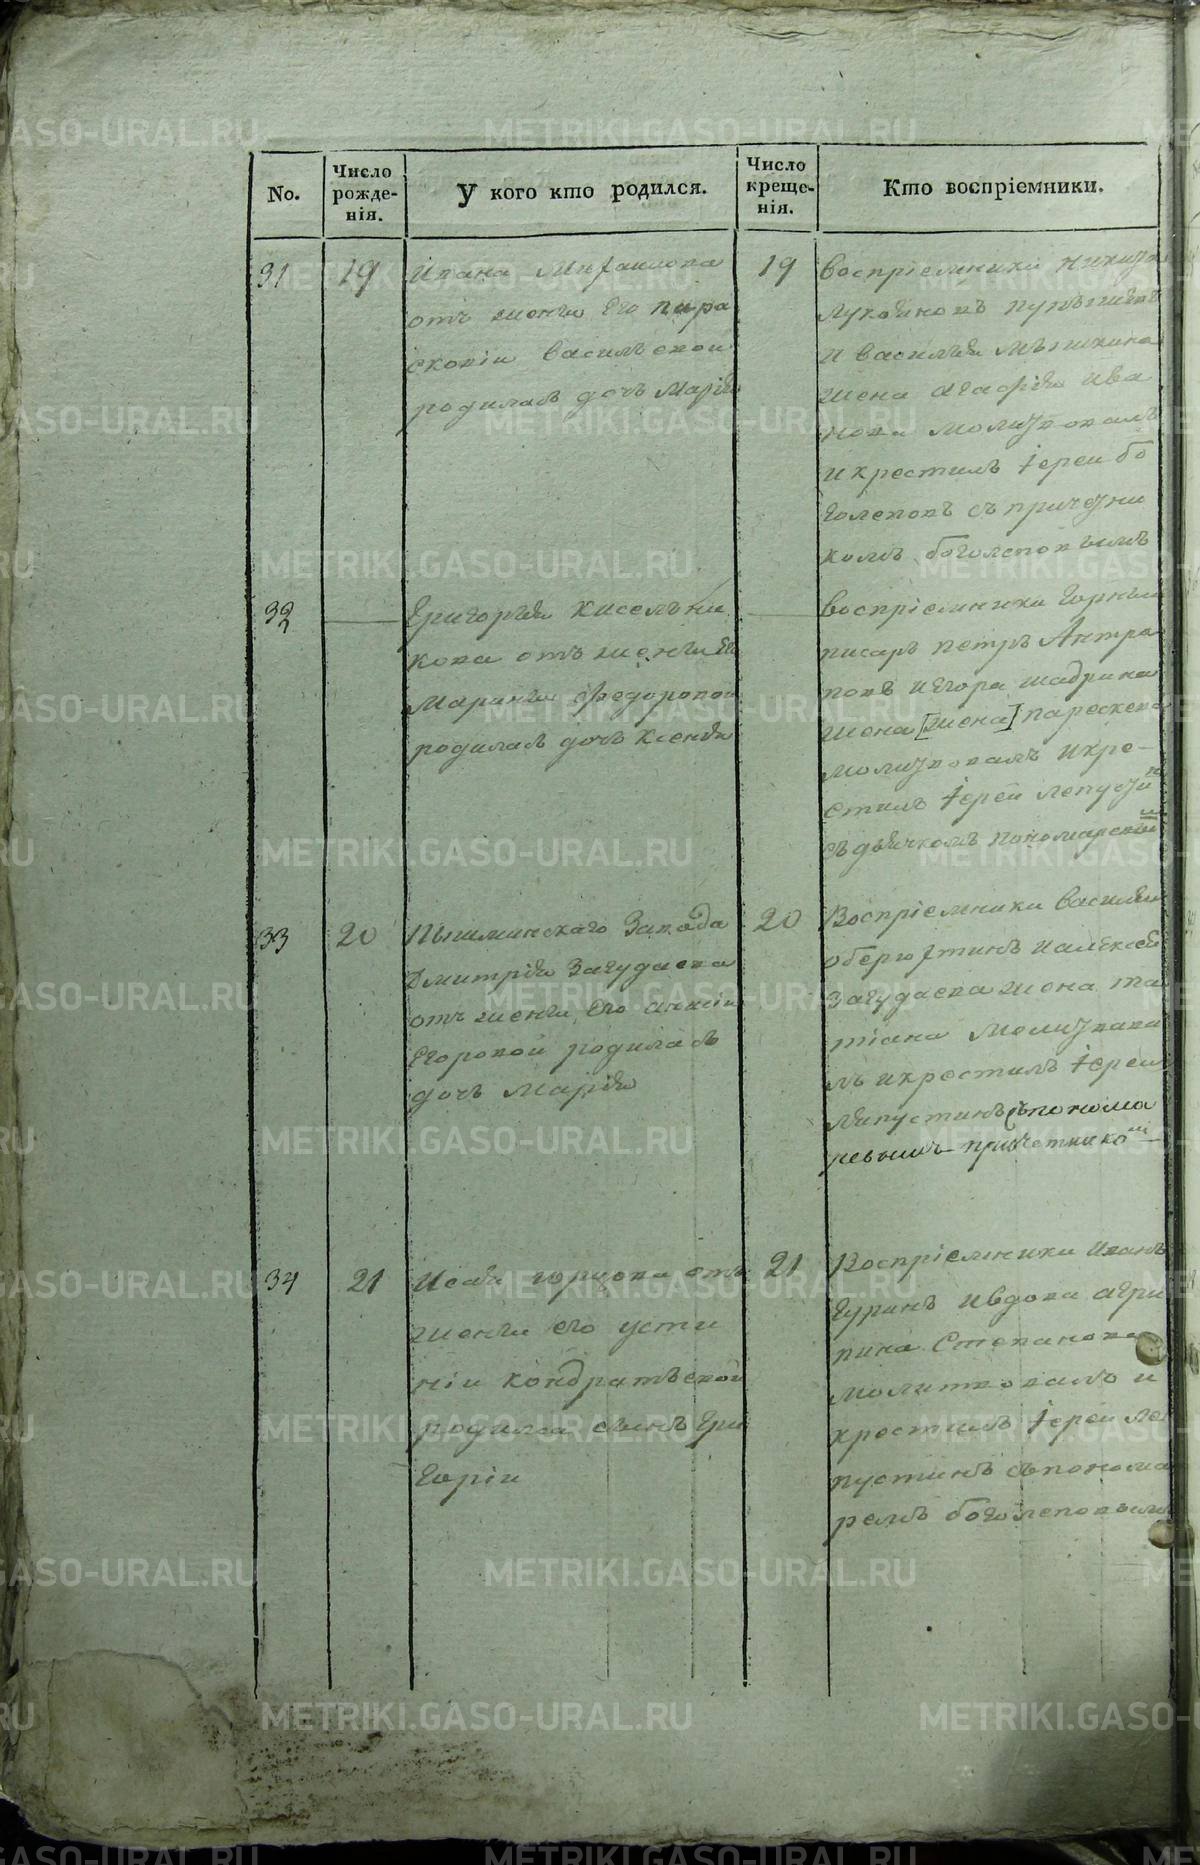 No.
Число рожде-нія.
У кого кто родился.
Число креще-нія.
Кто воспріемники.
31
19
Ивана Михаилова
отъ жены его пара
сковіи васильевой
родилась дочь Марія
19
воспріемники никита
лукоянов
и василья мѣшкина
жена агафія ива
нова молитвовалъ
и крестилъ іереи бо
голеповъ съ причетни
комъ боголеповымъ
32
Григорья кисельни
кова отъ жены ег
Марины федоровой
родилась дочь ксенія
воспріемники горный
писарь петръ Антра
повъ и егора шадрина
жена [жена] параскева
молитвовалъ и кре-
стилъ іереи лепусти
съ дьячкомъ пономарев
33
20
Пышминскаго Завода
Дмитрія Загудаева
отъ жены его анны
Егоровой родилась
дочь Марія
20
Воспріемники василей
оберюхтинъ и алексея
Загудаева жена та
тіана молитвова
лъ и крестилъ іереи
лепустинъ съ понома
ревымъ причетнико
34
21
Исаия отъ
жены его усти
ніи кондратьевой
родился сынъ Гри
горіи
21
Воспріемники иванъ
Гуринъ и вдова агри
пина Степанова
молитвовалъ и
крестилъ іереи ле
пустинъ съ понома
ремъ боголеповымъ
METRIKI.GASO-URAL.RU